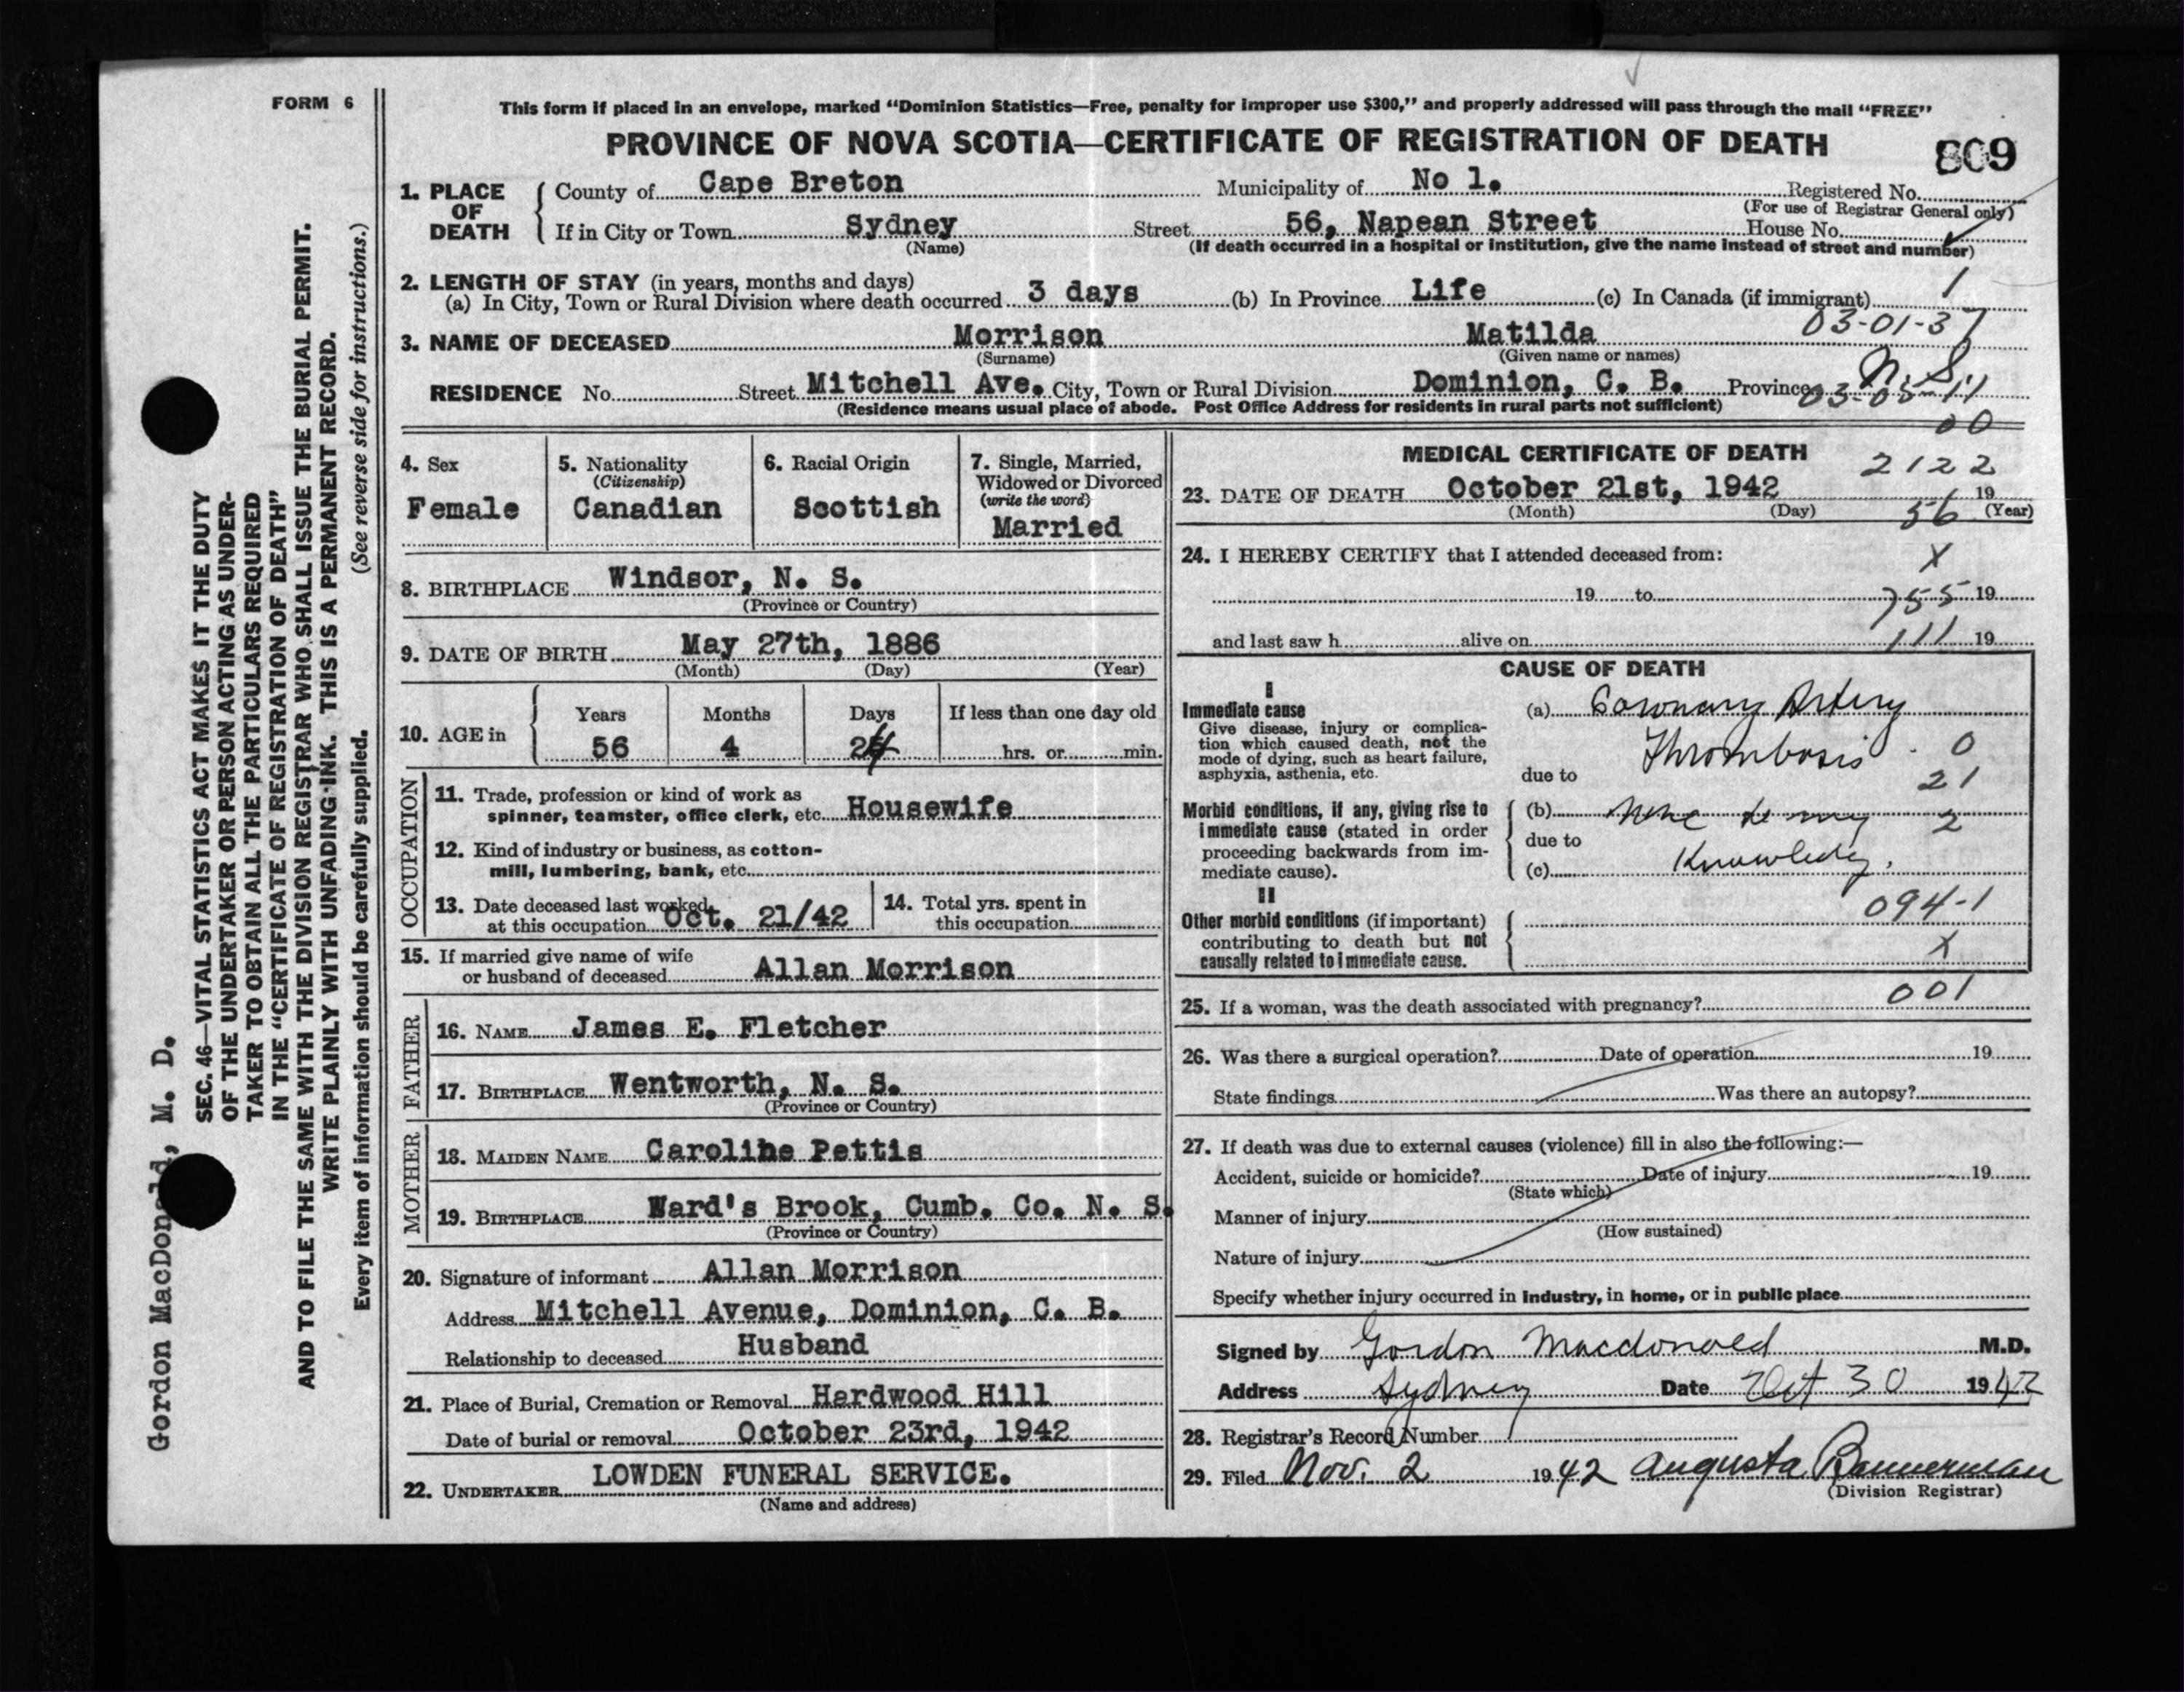 FORM 6
This form if placed in an envelope, marked "Dominion Statistics—Free, penalty for improper use $300," and properly addressed will pass through the mail "FREE"
PROVINCE OF NOVA SCOTIA—CERTIFICATE OF REGISTRATION OF DEATH
809
1. PLACE OF DEATH
County of Cape Breton Municipality of No 1. Registered No.
(For use of Registrar General only)
If in City or Town Sydney Street 56, Napean Street House No.
(Name) (If death occurred in a hospital or institution, give the name instead of street and number)
2. LENGTH OF STAY (in years, months and days)
(a) In City, Town or Rural Division where death occurred 3 days (b) In Province Life (c) In Canada (if immigrant) 1
03-01-37
3. NAME OF DECEASED Morrison Matilda
(Surname) (Given name or names)
RESIDENCE No. Street Mitchell Ave. City, Town or Rural Division Dominion, C. B. Province N.S.
03-05-11
(Residence means usual place of abode. Post Office Address for residents in rural parts not sufficient)
00
4. Sex
Female
5. Nationality
(Citizenship)
Canadian
6. Racial Origin
Scottish
7. Single, Married,
Widowed or Divorced
(write the word)
Married
8. BIRTHPLACE Windsor, N. S.
(Province or Country)
9. DATE OF BIRTH May 27th, 1886
(Month) (Day) (Year)
10. AGE in
Years Months Days If less than one day old
56 4 24 hrs. or min.
OCCUPATION
11. Trade, profession or kind of work as
spinner, teamster, office clerk, etc. Housewife
12. Kind of industry or business, as cotton-
mill, lumbering, bank, etc.
13. Date deceased last worked
at this occupation Oct. 21/42
14. Total yrs. spent in
this occupation
15. If married give name of wife
or husband of deceased Allan Morrison
FATHER
16. NAME James E. Fletcher
17. BIRTHPLACE Wentworth, N. S.
(Province or Country)
MOTHER
18. MAIDEN NAME Caroline Pettis
19. BIRTHPLACE Ward's Brook, Cumb. Co. N. S.
(Province or Country)
20. Signature of informant Allan Morrison
Address Mitchell Avenue, Dominion, C. B.
Relationship to deceased Husband
21. Place of Burial, Cremation or Removal Hardwood Hill
Date of burial or removal October 23rd, 1942
22. UNDERTAKER LOWDEN FUNERAL SERVICE.
(Name and address)
MEDICAL CERTIFICATE OF DEATH
2122
23. DATE OF DEATH October 21st, 1942 19
(Month) (Day) (Year)
56
24. I HEREBY CERTIFY that I attended deceased from:
X
19 to 755 19
and last saw h alive on 111 19
CAUSE OF DEATH
I
Immediate cause
Give disease, injury or complica-
tion which caused death, not the
mode of dying, such as heart failure,
asphyxia, asthenia, etc.
(a) Coronary Artery
Thrombosis. 0
due to 21
Morbid conditions, if any, giving rise to
immediate cause (stated in order
proceeding backwards from im-
mediate cause).
(b) None to my 2
due to
(c) Knowledg.
II
Other morbid conditions (if important)
contributing to death but not
causally related to immediate cause.
094-1
X
25. If a woman, was the death associated with pregnancy? 001
26. Was there a surgical operation? Date of operation 19
State findings Was there an autopsy?
27. If death was due to external causes (violence) fill in also the following:—
Accident, suicide or homicide? Date of injury 19
(State which)
Manner of injury
(How sustained)
Nature of injury
Specify whether injury occurred in Industry, in home, or in public place
Signed by Gordon Macdonald M.D.
Address Sydney Date Oct 30 1942
28. Registrar's Record Number
29. Filed Nov. 2 1942 Augusta Bannerman
(Division Registrar)
Gordon MacDonald, M. D.
SEC. 46—VITAL STATISTICS ACT MAKES IT THE DUTY
OF THE UNDERTAKER OR PERSON ACTING AS UNDER-
TAKER TO OBTAIN ALL THE PARTICULARS REQUIRED
IN THE "CERTIFICATE OF REGISTRATION OF DEATH"
AND TO FILE THE SAME WITH THE DIVISION REGISTRAR WHO SHALL ISSUE THE BURIAL PERMIT.
WRITE PLAINLY WITH UNFADING INK. THIS IS A PERMANENT RECORD.
Every item of information should be carefully supplied. (See reverse side for instructions.)